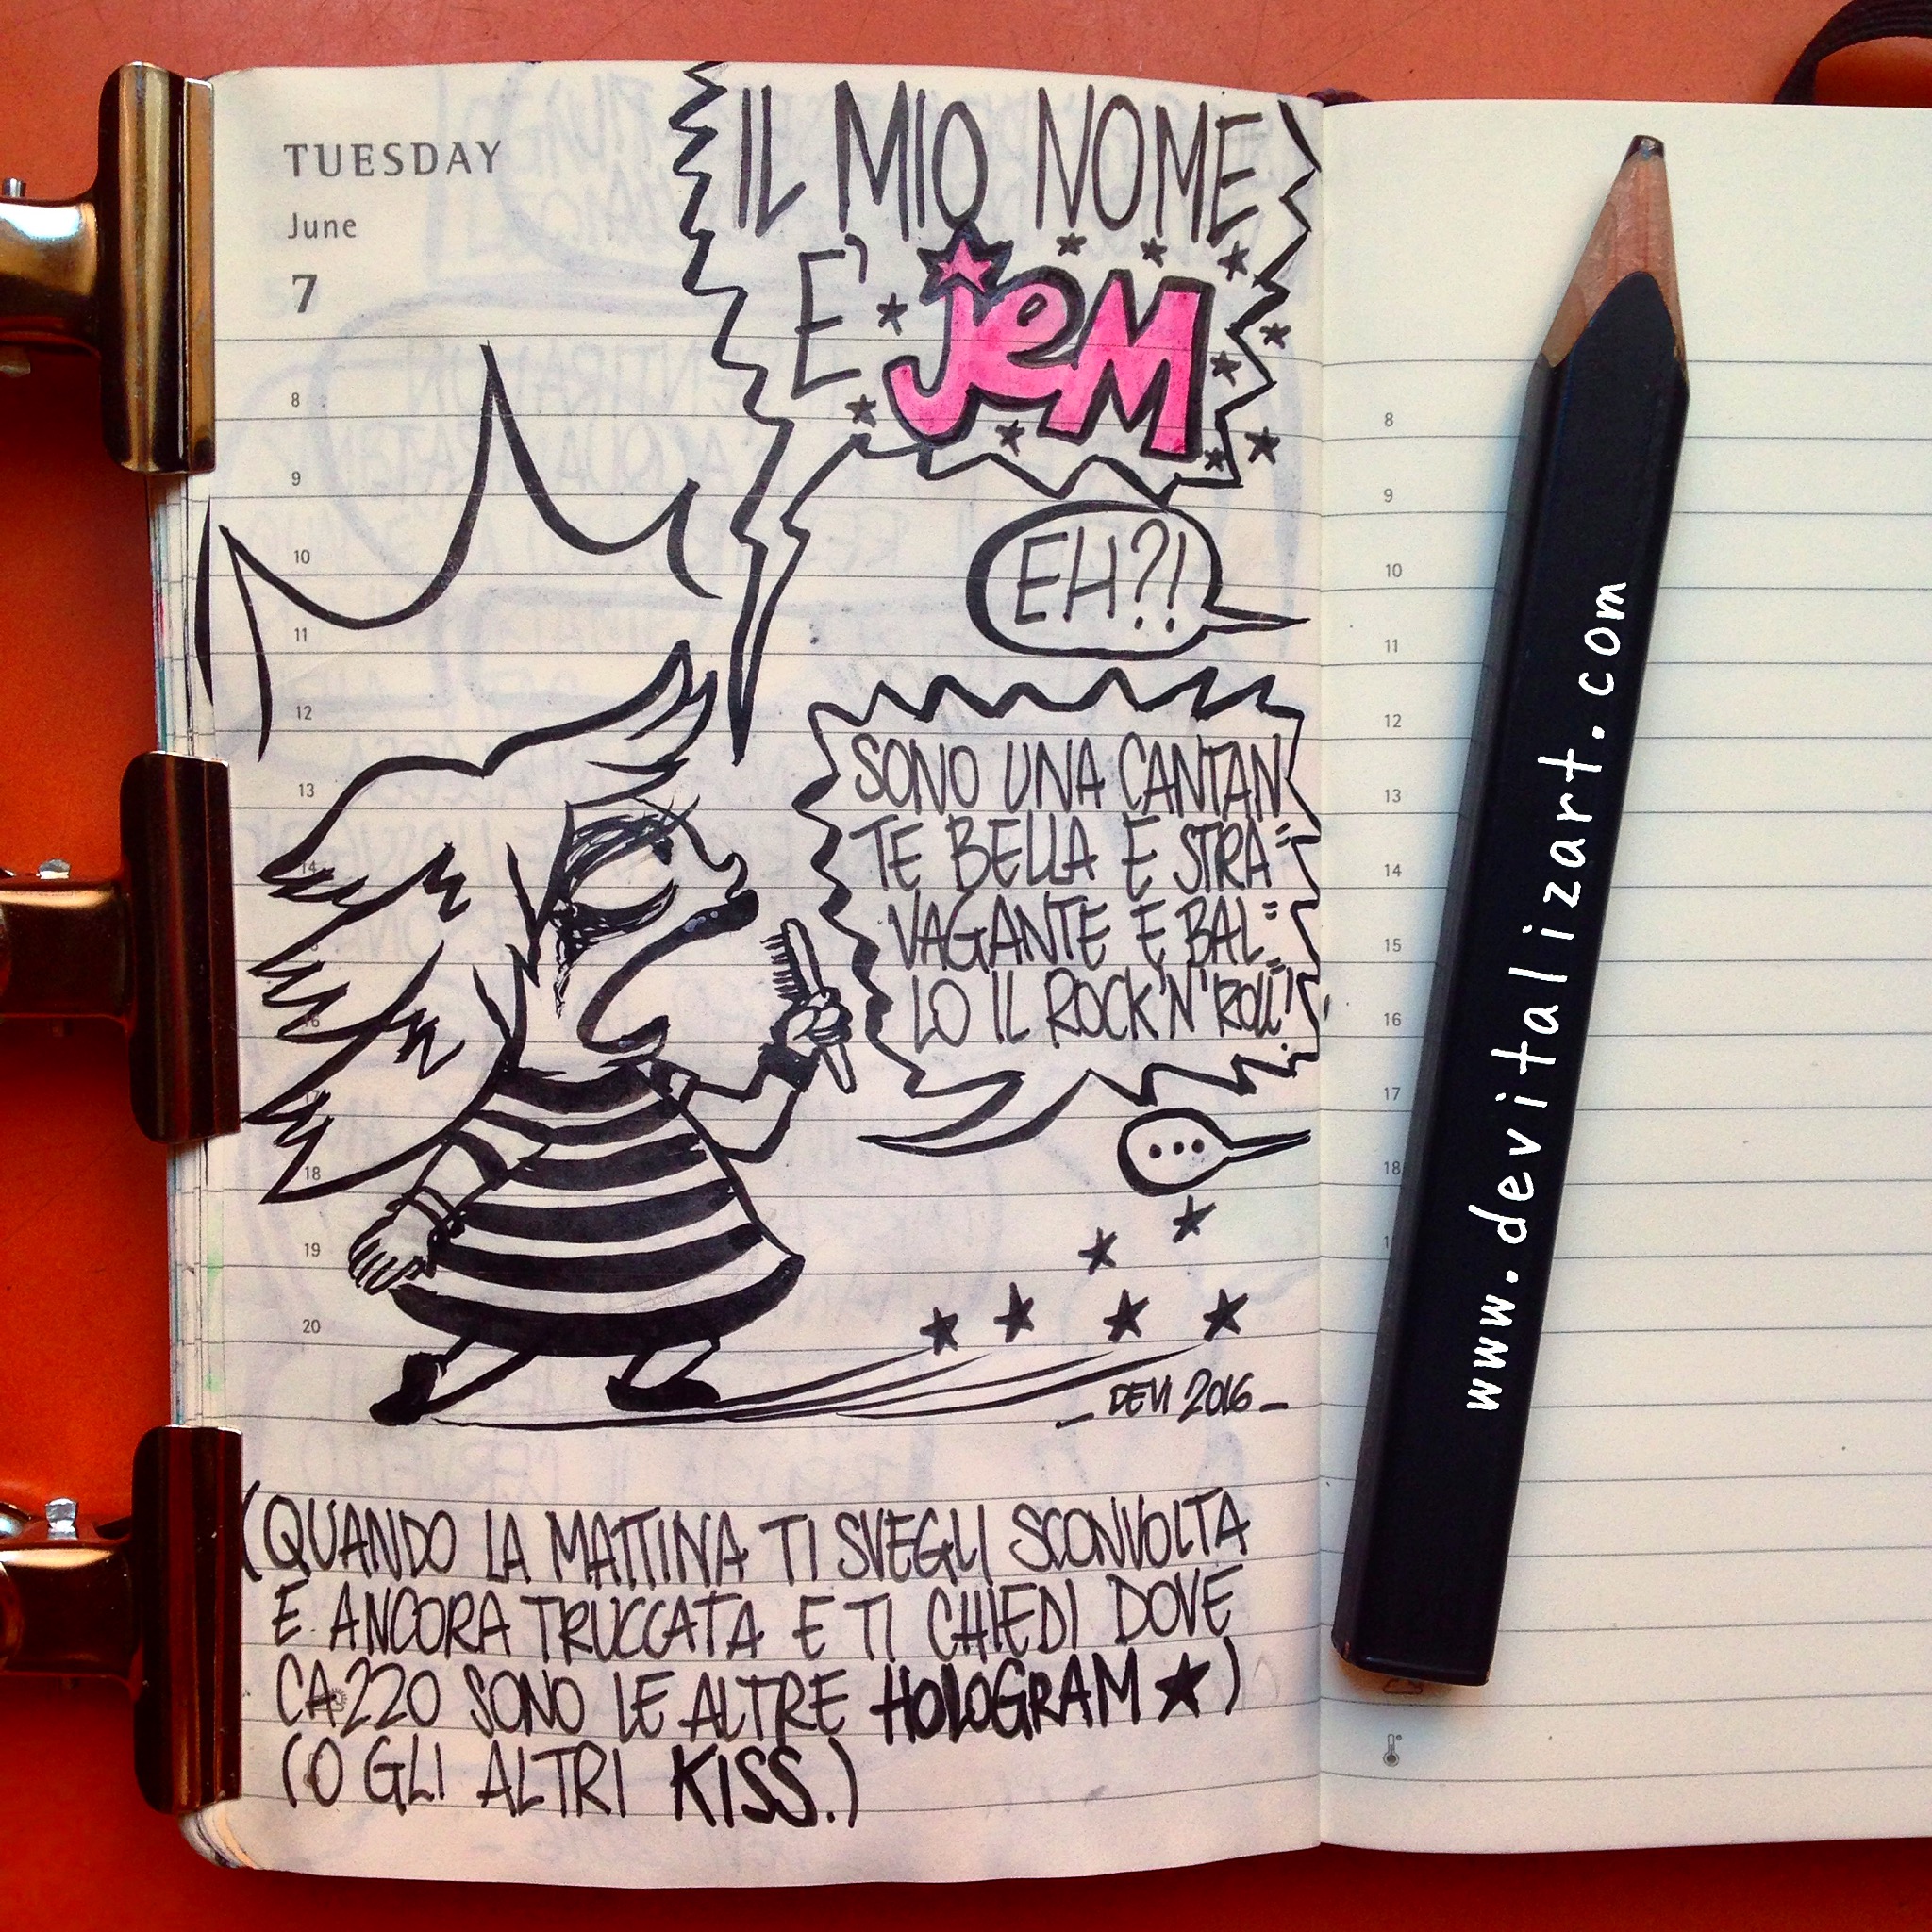 TUESDAY
June
7
IL MIO NOME
E' JEM
EH?!
SONO UNA CANTAN
TE BELLA E STRA=
VAGANTE E BAL=
LO IL ROCK'N'ROLL!
...
DEVI 2016
(QUANDO LA MATTINA TI SVEGLI SCONVOLTA
E ANCORA TRUCCATA E TI CHIEDI DOVE
CA220 SONO LE ALTRE HOLOGRAM ★)
(O GLI ALTRI KISS.)
8
9
10
11
12
13
14
16
18
19
20
8
9
10
11
12
13
14
15
16
17
18
www.devitalizart.com